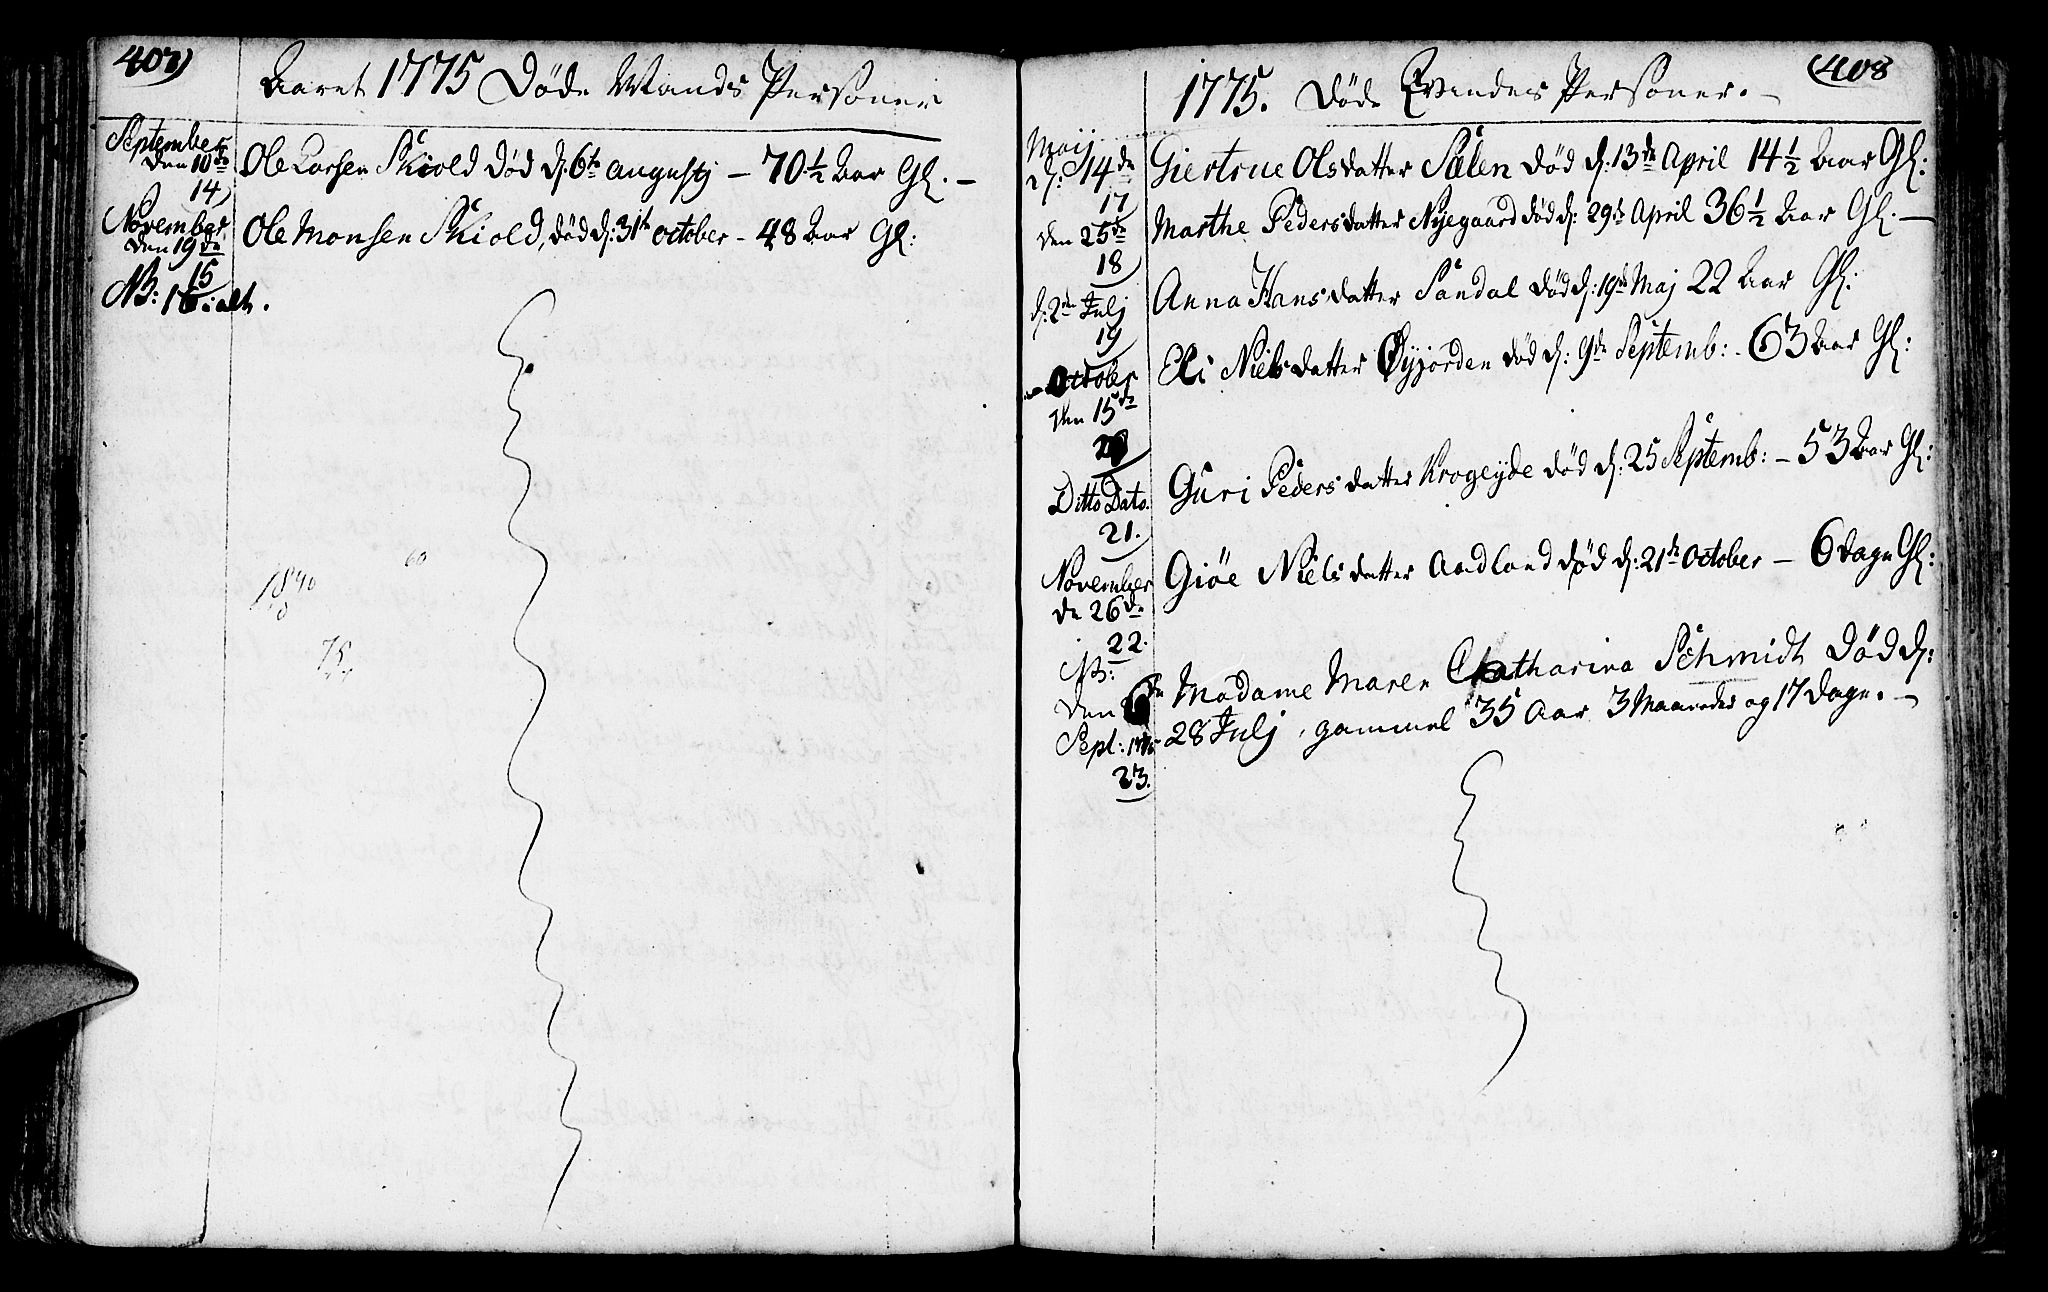 407)
Aaret 1775 Døde Mands Personer
September
den 10de
14)
Ole Larsen Skiold død d: 6te Augustj – 70 1/2 Aar Gl. –
November
den 19de
15
Ole Monsen Skiold, død d: 31te October – 48 Aar Gl:
NB: 16. alt.
60
1840
8
75
(408
1775. Døde Qvindes Personer. –
Maij
d: 14de
17
Giertrue Olsdatter Sælen død d: 13de April 14 1/2 Aar Gl:
den 25de
18
Marthe Pedersdatter Nyegaard død d: 29de April 36 1/2 Aar Gl. –
d: 2de Julj
19
Anna Hansdatter Sandal død d: 19de Maj 22 Aar Gl:
October
den 15de
20
Eli Nielsdatter Øyjorden død d: 9de Septemb: – 63 Aar Gl:
Ditto Dato.
21.
Guri Pedersdatter Krogeyde død d: 25 Septemb: – 53 Aar Gl:
November
de 26de
22.
Giøe Nielsdatter Aadland død d: 21de October – 6 dage Gl:
NB:
den 6te
Sept: 1775
23.
Madame Maren Catharina Schmidt død d:
28 Julj, gammel 35 Aar 3 Maaneder og 17 dage. –